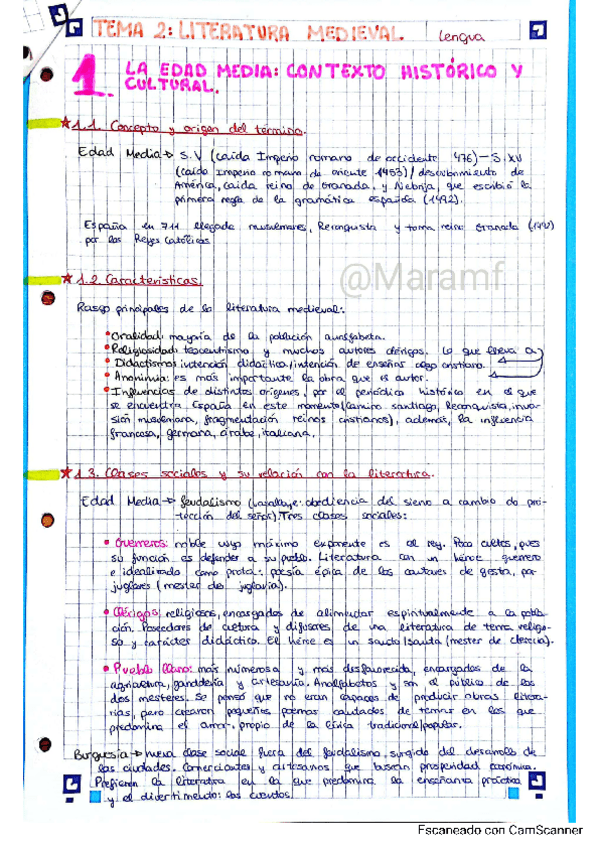 TEMA 2: LITERATURA MEDIEVAL Lengua
1. LA EDAD MEDIA: CONTEXTO HISTÓRICO Y
CULTURAL.
★1.1. Concepto y origen del término.
Edad Media → S.V (caída Imperio romano de occidente 476) – S.XV
(caída Imperio romano de oriente 1453) / descubrimiento de
América, caída reino de Granada, y Nebrija, que escribió la
primera regla de la gramática española (1492).
España en 711 llegada musulmanes, Reconquista y toma reino Granada (1492)
por los Reyes Católicos
★1.2 Características.
@Maramf
Rasgo principales de la literatura medieval:
• Oralidad: mayoría de la población analfabeta.
• Religiosidad: teocentrismo y muchos autores clérigos. Lo que lleva a
• Didactismo: intención didáctica/intención de enseñar algo cristiano.
• Anonimia: es más importante la obra que el autor.
• Influencias de distintos orígenes, por el periódico histórico en el que
se encuentra España en este momento (camino santiago, Reconquista, inva-
sión musulmana, fragmentación reinos cristianos), además, la influencia
francesa, germana, árabe, italiana.
★1.3. Clases sociales y su relación con la literatura.
Edad Media → feudalismo (vasallaje: obediencia del siervo a cambio de pro-
tección del señor). Tres clases sociales:
• Guerreros: noble cuyo máximo exponente es el rey. Poco cultos, pues
su función es defender a su pueblo. Literatura con un héroe guerrero
e idealizado como prota: poesía épica de los cantares de gesta, por
juglares (mester de juglaría).
• Clérigos: religiosos, encargados de alimentar espiritualmente a la pobla-
ción. Poseedores de cultura y difusores de una literatura de tema religio-
so y carácter didáctico. El héroe es un santo/santa (mester de clerecía).
• Pueblo llano: más numerosa y más desfavorecida, encargados de la
agricultura, ganadería y artesanía. Analfabetos y son el público de los
dos mesteres. Se pensó que no eran capaces de producir obras litera-
rias, pero crearon pequeños poemas cantados de temas en los que
predomina el amor, propio de la lírica tradicional/popular.
Burguesía → nueva clase social fuera del feudalismo, surgido del desarrollo de
las ciudades. Comerciantes y artesanos que buscan prosperidad económica.
Prefieren la literatura en la que predomina la enseñanza práctica
y el divertimento: los cuentos.
Escaneado con CamScanner